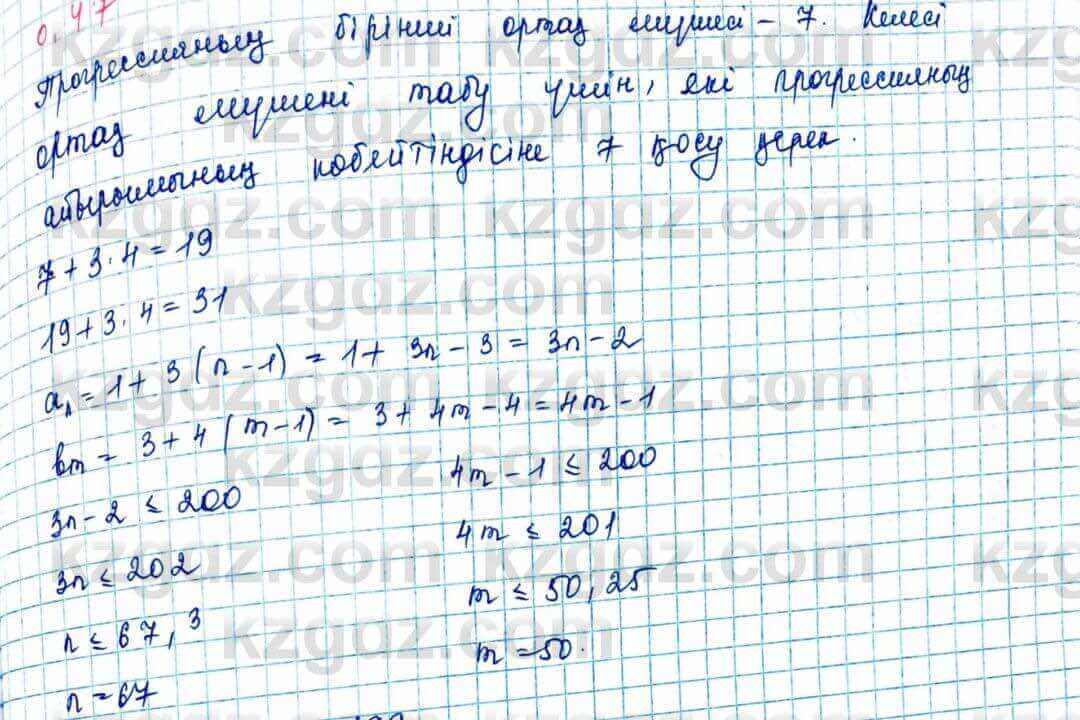 0.47
Прогрессияның бірінші ортақ мүшесі – 7. Келесі
ортақ мүшені табу үшін, екі прогрессияның
айырымының көбейтіндісіне 7 қосу керек.
7 + 3 · 4 = 19
19 + 3 · 4 = 31
aₙ = 1 + 3(n – 1) = 1 + 3n – 3 = 3n – 2
bm = 3 + 4(m – 1) = 3 + 4m – 4 = 4m – 1
3n – 2 ≤ 200 4m – 1 ≤ 200
3n ≤ 202 4m ≤ 201
n ≤ 67,3 m ≤ 50,25
n = 67 m = 50.
kzgdz.com